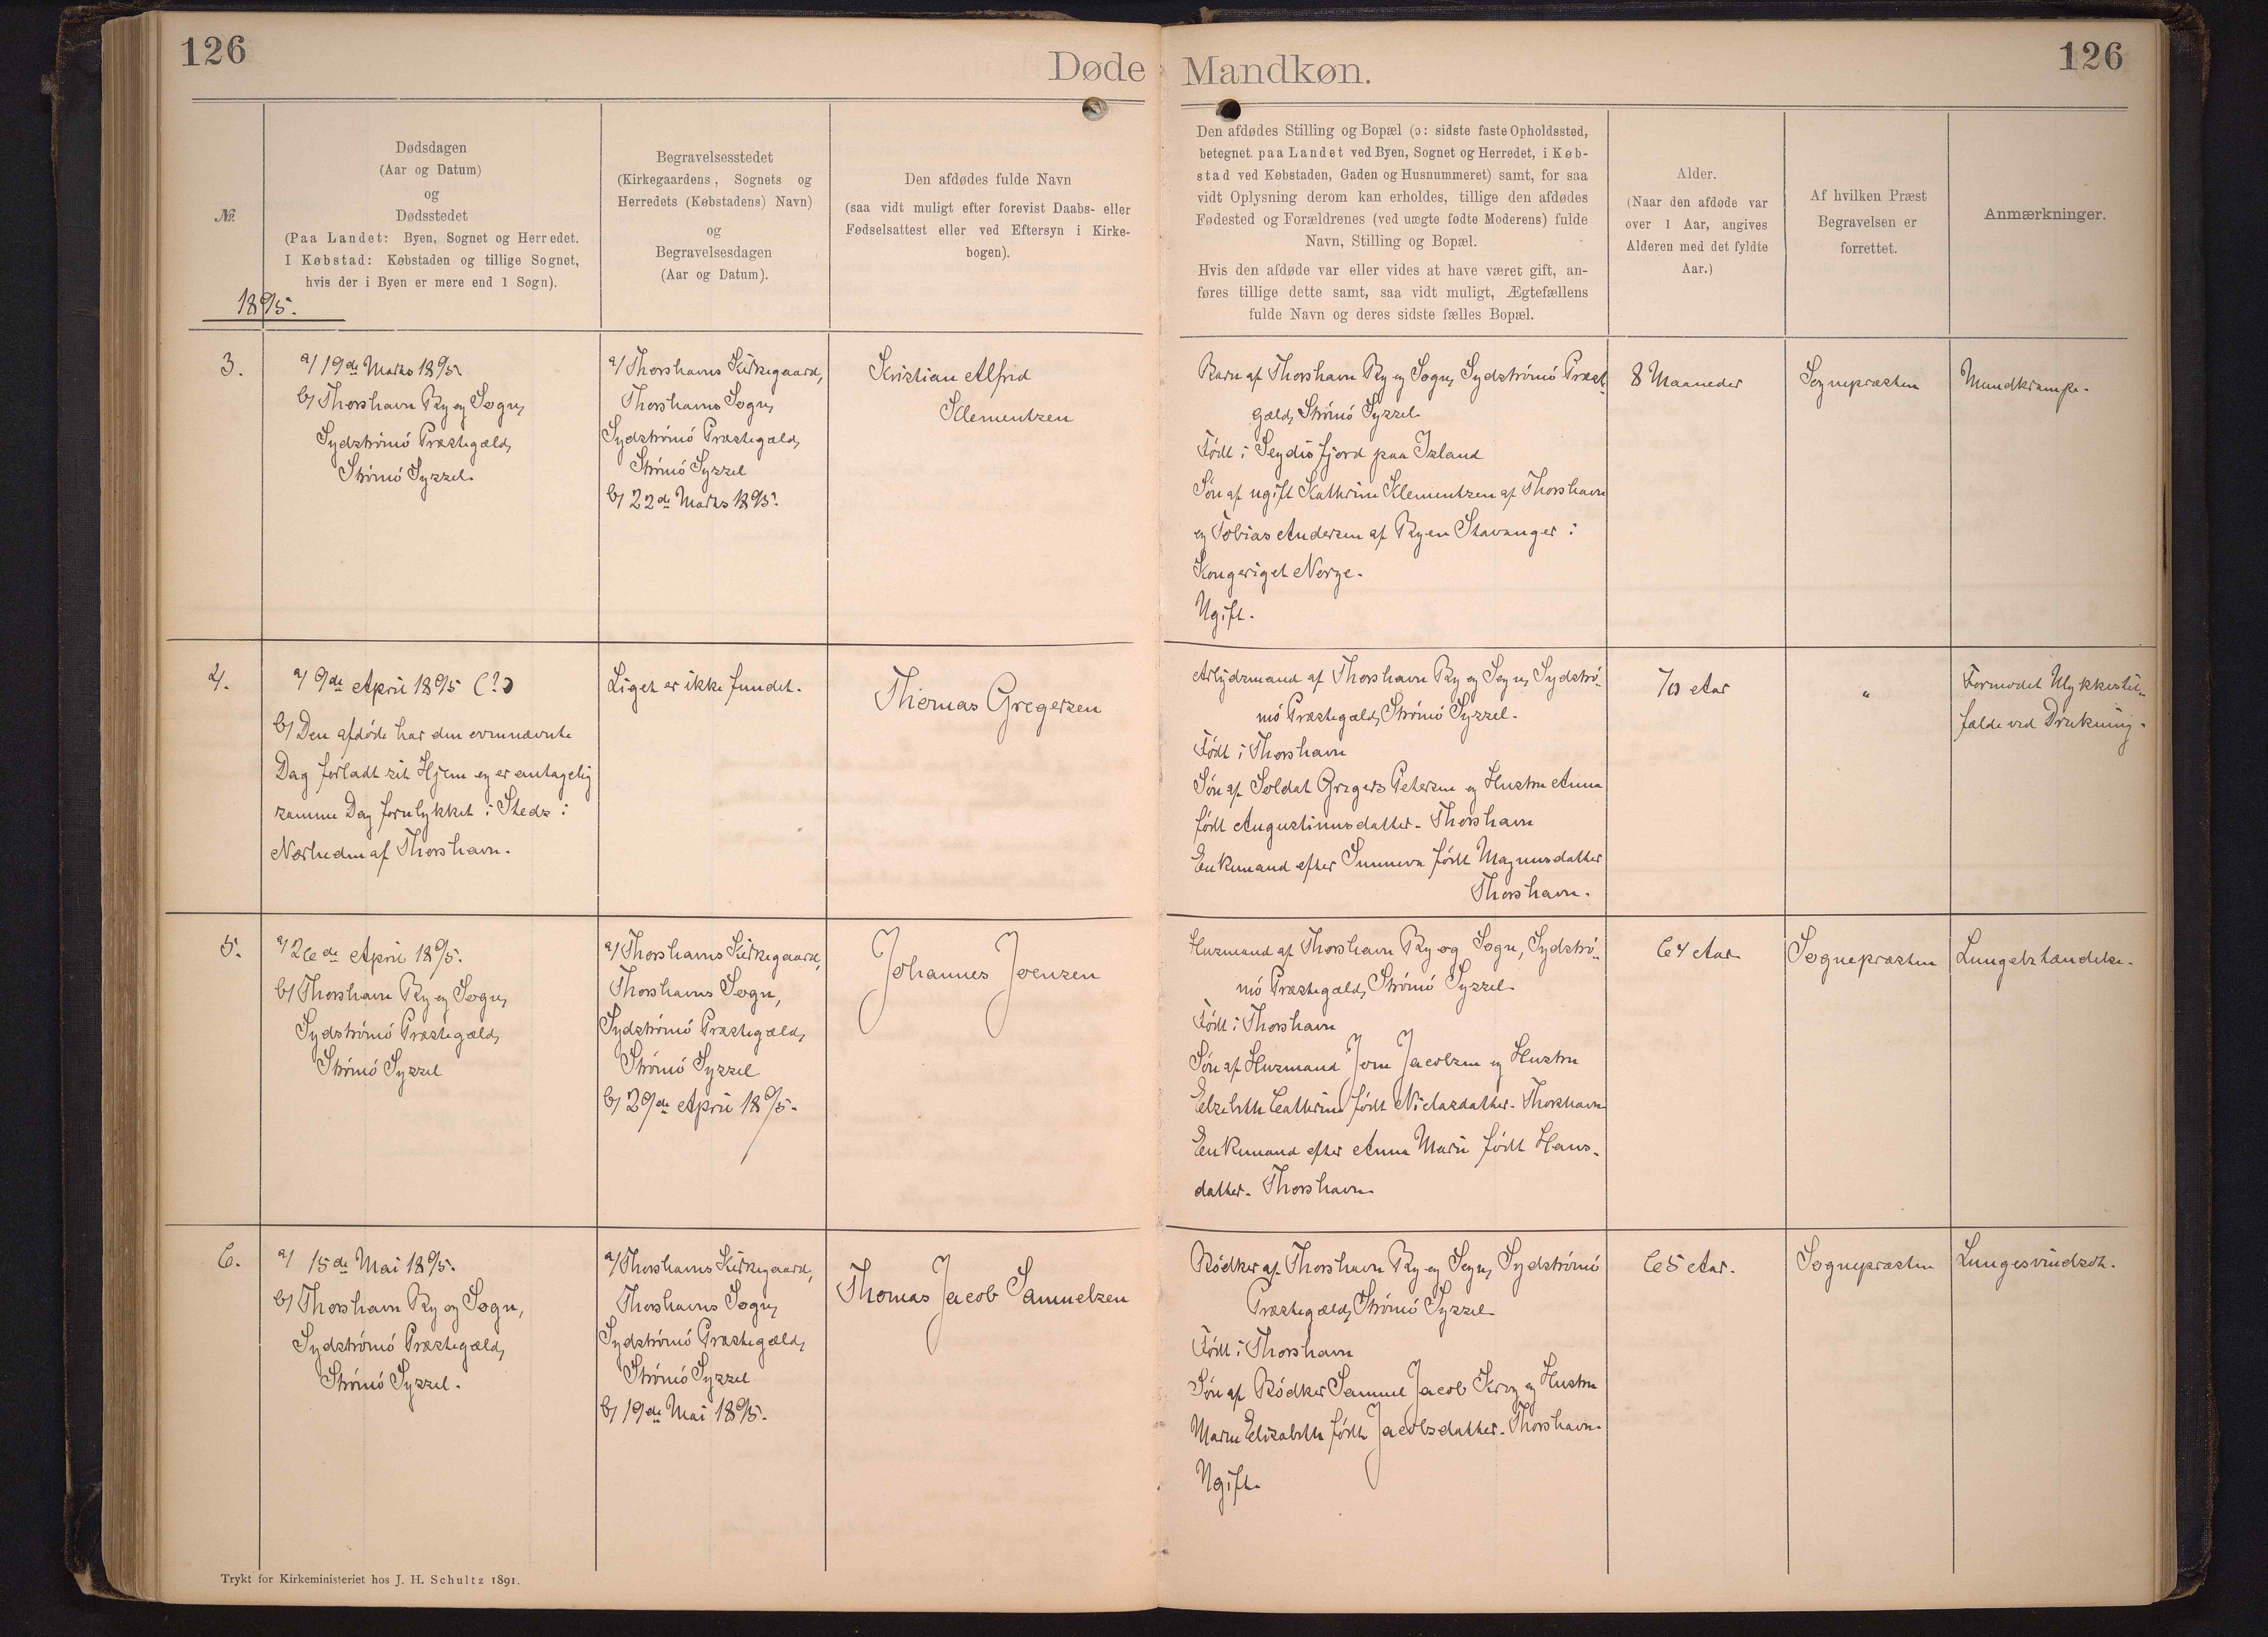 126
Døde
Mandkøn.
126
№
1895.
Dødsdagen
(Aar og Datum)
og
Dødsstedet
(Paa Landet: Byen, Sognet og Herredet.
I Købstad: Købstaden og tillige Sognet,
hvis der i Byen er mere end 1 Sogn).
Begravelsesstedet
(Kirkegaardens, Sognets og
Herredets (Købstadens) Navn)
og
Begravelsesdagen
(Aar og Datum).
Den afdødes fulde Navn
(saa vidt muligt efter forevist Daabs- eller
Fødselsattest eller ved Eftersyn i Kirke-
bogen).
Den afdødes Stilling og Bopæl (ɔ: sidste faste Opholdssted,
betegnet paa Landet ved Byen, Sognet og Herredet, i Køb-
stad ved Købstaden, Gaden og Husnummeret) samt, for saa
vidt Oplysning derom kan erholdes, tillige den afdødes
Fødested og Forældrenes (ved uægte fødte Moderens) fulde
Navn, Stilling og Bopæl.
Hvis den afdøde var eller vides at have været gift, an-
føres tillige dette samt, saa vidt muligt, Ægtefællens
fulde Navn og deres sidste fælles Bopæl.
Alder.
(Naar den afdøde var
over 1 Aar, angives
Alderen med det fyldte
Aar.)
Af hvilken Præst
Begravelsen er
forrettet.
Anmærkninger.
3.
a/ 19de Marts 1895.
b/ Thorshavn By og Sogn,
Sydströmö Præstegæld,
Strömö Syssel.
a/ Thorshavns Kirkegaard,
Thorshavns Sogn,
Sydströmö Præstegæld,
Strömö Syssel
b/ 22de Marts 1895.
Kristian Alfred
Klementsen
Barn af Thorshavn By og Sogn, Sydströmö Præste-
gæld, Strömö Syssel.
Födt i Seydisfjord paa Island
Sön af ugift Kathrine Klementsen af Thorshavn
og Tobias Andersen af Byen Stavanger i
Kongeriget Norge.
Ugift.
8 Maaneder
Sognepræsten
Mundkrampe.
4.
a/ 9de April 1895 (?)
b/ Den afdöde har den ovennævnte
Dag forladt sit Hjem og er antagelig
samme Dag forulykket i Steds i
Nærheden af Thorshavn.
Liget er ikke fundet.
Thomas Gregersen
Arbejdsmand af Thorshavn By og Sogn, Sydströ-
mö Præstegæld, Strömö Syssel.
Födt i Thorshavn
Sön af Soldat Gregers Petersen og Hustru Anna
födt Augustinusdatter. Thorshavn
Enkemand efter Sunneva födt Magnusdatter
Thorshavn.
70 Aar
"
Formodet Ulykkestil-
fælde ved Drukning.
5.
a/ 26de April 1895.
b/ Thorshavn By og Sogn,
Sydströmö Præstegæld,
Strömö Syssel
a/ Thorshavns Kirkegaard,
Thorshavns Sogn,
Sydströmö Præstegæld,
Strömö Syssel
b/ 29de April 1895.
Johannes Joensen
Husmand af Thorshavn By og Sogn, Sydströ-
mö Præstegæld, Strömö Syssel.
Födt i Thorshavn
Sön af Husmand Joen Jacobsen og Hustru
Elsebeth Cathrine födt Niclasdatter. Thorshavn
Enkemand efter Anna Marie födt Hans-
datter. Thorshavn.
64 Aar
Sognepræsten
Lungebetændelse.
6.
a/ 15de Mai 1895.
b/ Thorshavn By og Sogn,
Sydströmö Præstegæld,
Strömö Syssel.
a/ Thorshavns Kirkegaard,
Thorshavns Sogn,
Sydströmö Præstegæld,
Strömö Syssel
b/ 19de Mai 1895.
Thomas Jacob Samuelsen
Bödker af Thorshavn By og Sogn, Sydströmö
Præstegæld, Strömö Syssel.
Födt i Thorshavn
Sön af Bödker Samuel Jacob Krog og Hustru
Maren Elisabeth födt Jacobsdatter. Thorshavn.
Ugift.
65 Aar.
Sognepræsten
Lungesvindsot.
Trykt for Kirkeministeriet hos J. H. Schultz 1891.